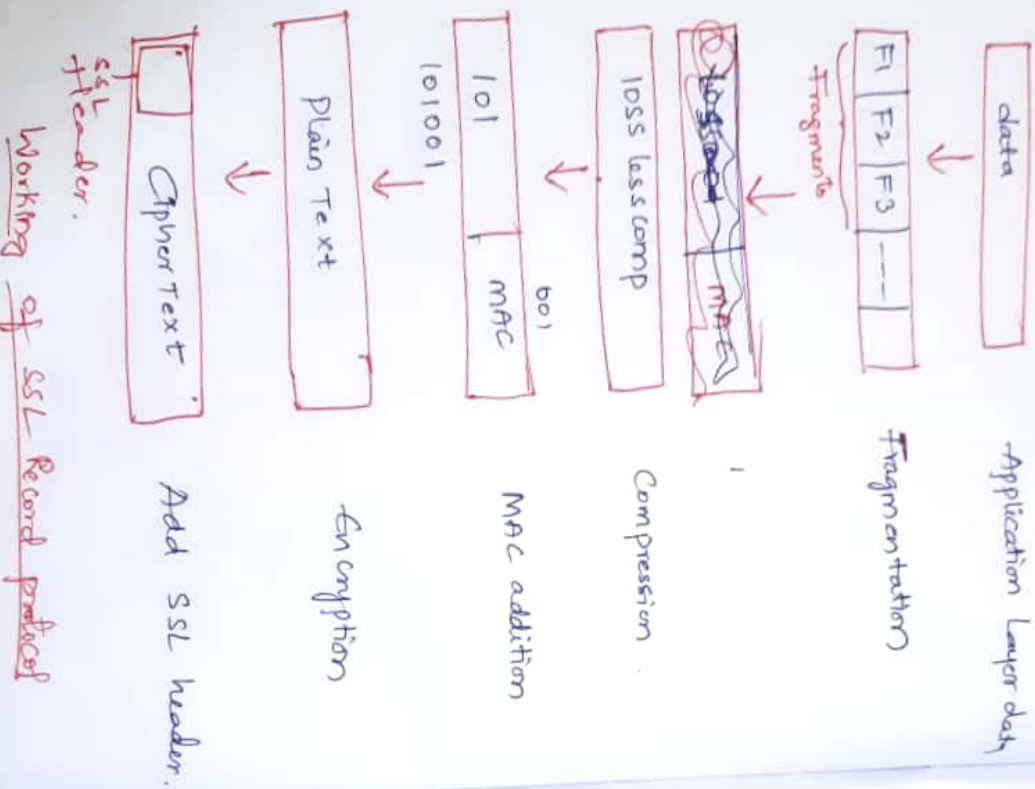 data
Application Layer data
F1 F2 F3 ---
Fragments
Fragmentation
MAC
loss less comp
Compression.
101 MAC
101001
001
MAC addition
Plain Text
Encryption
Cipher Text
SSL
Header.
Add SSL header.
Working of SSL Record protocol